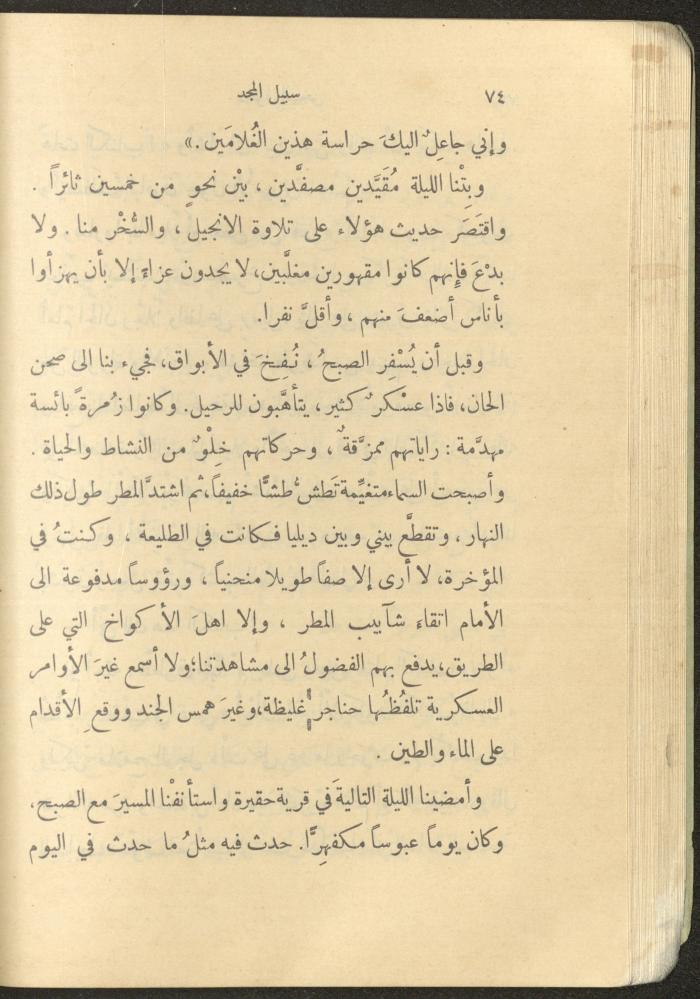 ٧٤ سبيل المجد
وإني جاعِلٌ اليكَ حراسة هذين الغُلامَين .»
وبِتْنا الليلة مُقَيَّدين مصفَّدين ، بيْن نحوٍ من خمسين ثائراً .
واقتَصَر حديث هؤلاء على تلاوة الانجيل ، والسُّخْر منا . ولا
بدْعَ فإنهم كانوا مقهورين مغلَّبين، لا يجدون عزاء إلا بأن يهزأوا
بأناس أضعفَ منهم ، وأقلَّ نفرا.
وقبل أن يُسْفِر الصبحُ ، نُفِخَ في الأبواق، فجيء بنا الى صحن
الخان، فاذا عسْكرٌ كثير ، يتأهَّبون للرحيل. وكانوا زُمرةً بائسة
مهدَّمة : راياتهم ممزَّقةٌ ، وحركاتهم خِلْوٌ من النشاط والحياة .
وأصبحت السماء متغيِّمة تَطشُّ طشًّا خفيفاً، ثم اشتدَّ المطر طول ذلك
النهار ، وتقطَّع بيني وبين ديليا فكانت في الطليعة ، وكنتُ في
المؤخرة، لا أرى إلا صفاً طويلا منحنياً ، ورؤوساً مدفوعة الى
الأمام اتقاء شآبيب المطر ، وإلا اهلَ الأكواخ التي على
الطريق، يدفع بهم الفضولُ الى مشاهدتنا؛ ولا أسمع غيرَ الأوامر
العسكرية تلفُظُها حناجر غليظة، وغيرَ همس الجند ووقع الأقدام
على الماء والطين .
وأمضينا الليلة التاليةَ في قرية حقيرة واستأنفْنا المسيرَ مع الصبح،
وكان يوماً عبوساً مكفهِرًّا. حدث فيه مثلُ ما حدث في اليوم